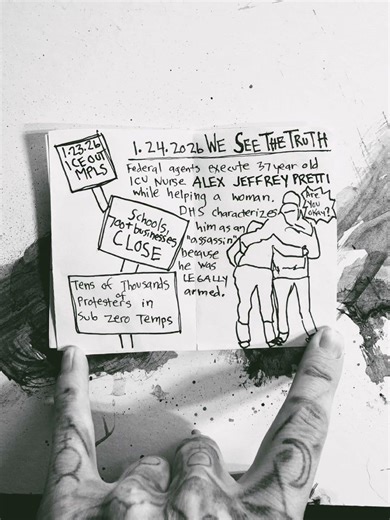 1.23.26
ICE OUT
MPLS
Schools,
700+ businesses
CLOSE
Tens of Thousands
of
Protesters in
Sub Zero Temps
1.24.2026 WE SEE THE TRUTH
Federal agents execute 37 year old
ICU Nurse ALEX JEFFREY PRETTI
while helping a woman.
DHS characterizes
him as an
"assassin"
because
he was
LEGALLY
armed.
Are
you
okay?